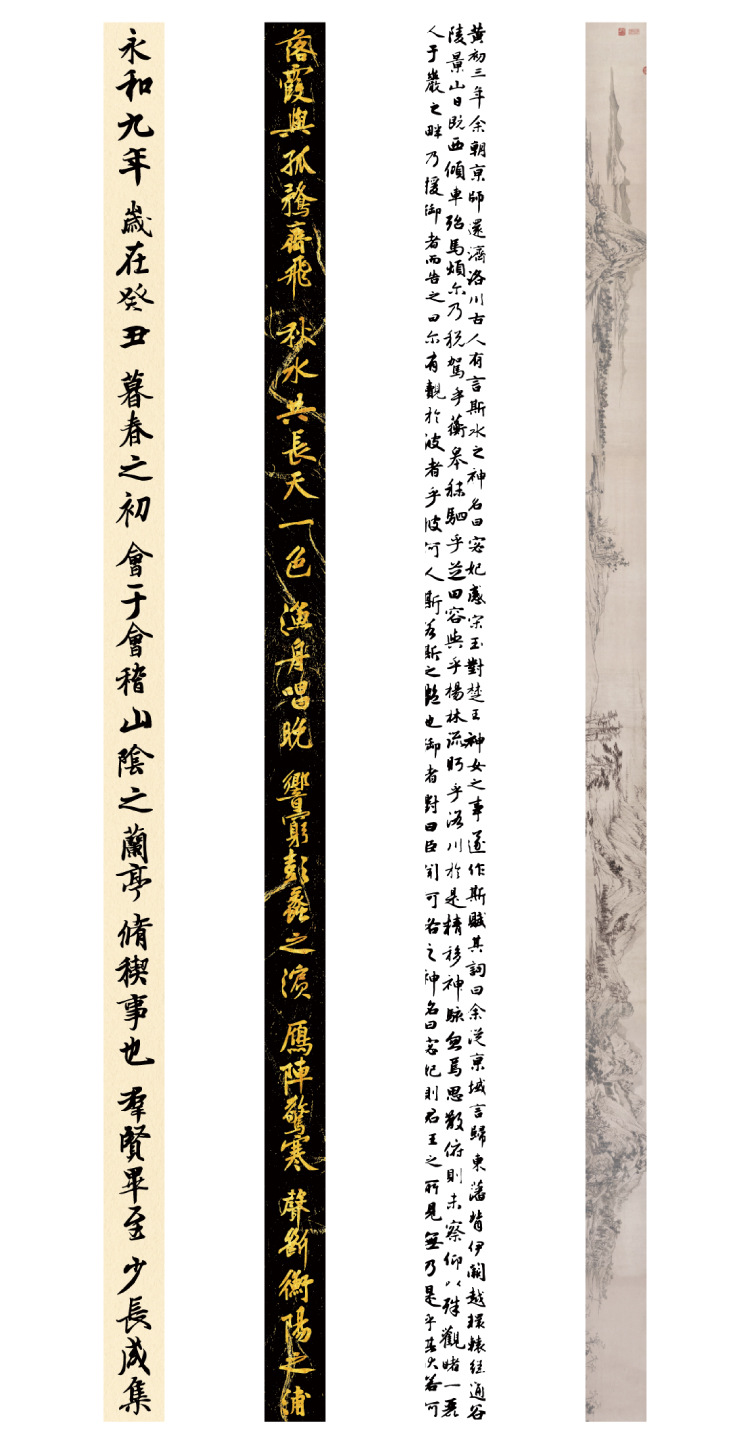 永和九年 歲在癸丑 暮春之初 會于會稽山陰之蘭亭 脩稧事也 羣賢畢至 少長咸集
落霞與孤鶩齊飛 秋水共長天一色 漁舟唱晚 響窮彭蠡之濱 鴈陣驚寒 聲斷衡陽之浦
黃初三年余朝京師還濟洛川古人有言斯水之神名曰宓妃感宋玉對楚王神女之事遂作斯賦其詞曰余從京域言歸東藩背伊闕越轘轅經通谷
陵景山日既西傾車殆馬煩尓乃稅駕乎蘅皋秣駟乎芝田容與乎楊林流眄乎洛川於是精移神駭忽焉思散俯則未察仰以殊觀睹一麗
人于巖之畔乃援御者而告之曰尓有覿於彼者乎彼何人斯若斯之豔也御者對曰臣聞河洛之神名曰宓妃則君王之所見無乃是乎其狀若何